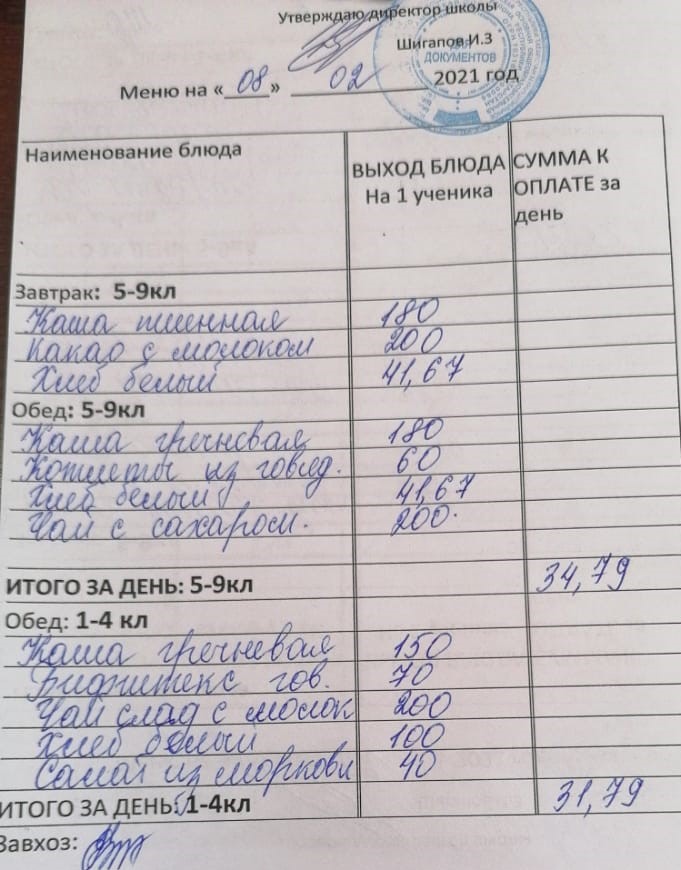 Утверждаю директор школы
Шигапов И.З
ДОКУМЕНТОВ
Меню на «08» 02 2021 год
Наименование блюда ВЫХОД БЛЮДА На 1 ученика СУММА К ОПЛАТЕ за день
Завтрак: 5-9кл
Каша пшенная 180
Какао с молоком 200
Хлеб белый 41,67
Обед: 5-9кл
Каша гречневая 180
Котлеты из говяд. 60
Хлеб белый 41,67
Чай с сахаром. 200.
ИТОГО ЗА ДЕНЬ: 5-9кл 34,79
Обед: 1-4 кл
Каша гречневая 150
Бифштекс гов. 70
Чай слад с молок 200
Хлеб белый 100
Салат из моркови 40
ИТОГО ЗА ДЕНЬ: 1-4кл 31,79
Завхоз: